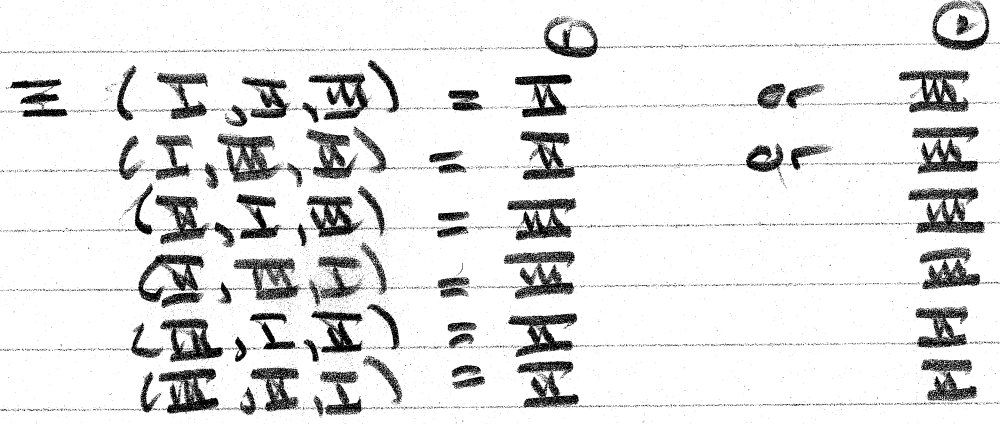 ① ②
Ξ (I, II, III) = II or III
(I, III, II) = II or III
(II, I, III) = III III
(II, III, I) = III III
(III, I, II) = II II
(III, II, I) = II II